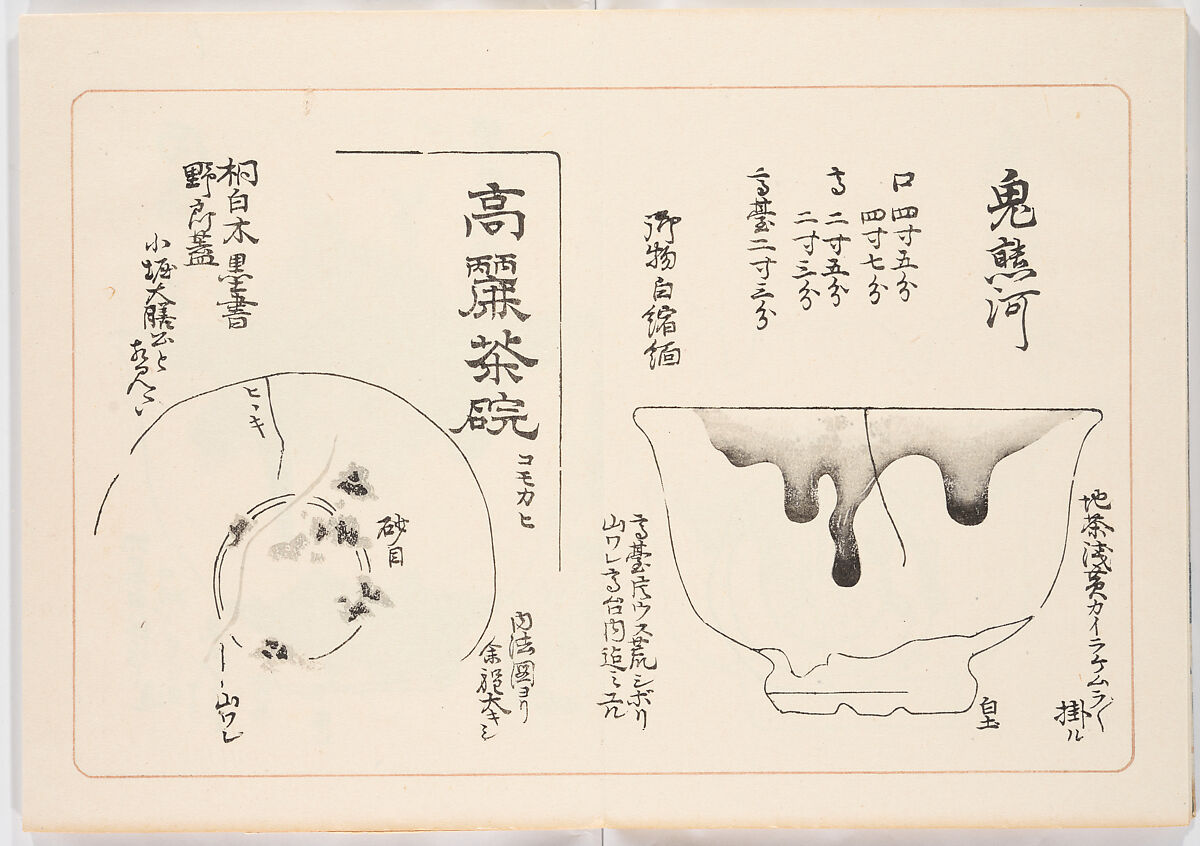 鬼熊河
口 四寸五分
四寸七分
高 二寸五分
二寸三分
高臺二寸三分
御物 白縮緬
地茶浅黄カイラケムラ〱
掛ル
白土
高臺片ウス荒シボリ
山ワレ高台内迠ミユル
高麗茶碗
コモカヒ
桐白木墨書
野郎蓋
小堀大膳公と
ヒヽキ
砂目
山ワレ
内法圖ヨリ
余程大キシ